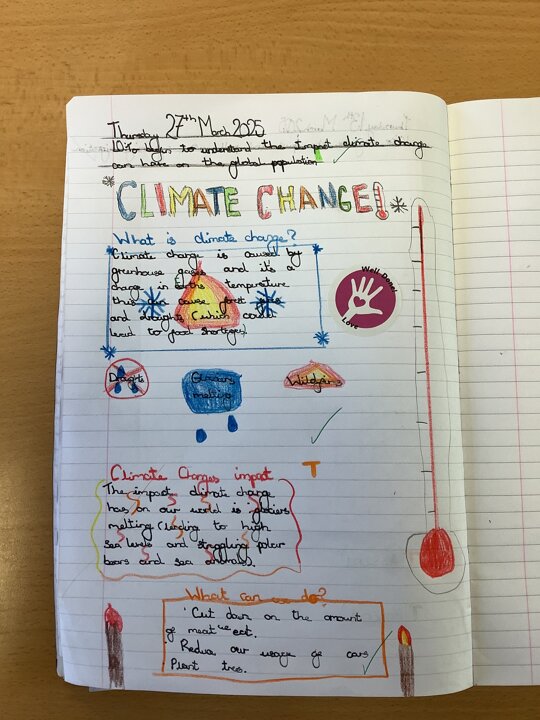 Thursday 27th March 2025
LO: To begin to understand the impact climate change
can have on the global population
CLIMATE CHANGE!
What is climate change?
Climate change is caused by
greenhouse gases and it's a
change in Earths temperature
this can cause forest fires
and droughts (which could
lead to food shortages)
Well Done!
Love
Droughts
Glaciers
melting
Wildfires
T
Climate Changes impact
The impact climate change
has on our world is glaciers
melting (leading to high
sea levels and struggling polar
bears and sea animals).
What can we do?
Cut down on the amount
of meat we eat.
Reduce our usage of cars
Plant trees.